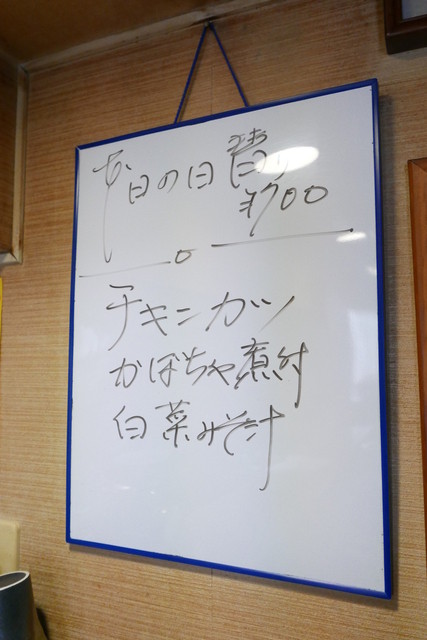 本日の日替り
¥700
チキンカツ
かぼちゃ煮付
白菜みそ汁